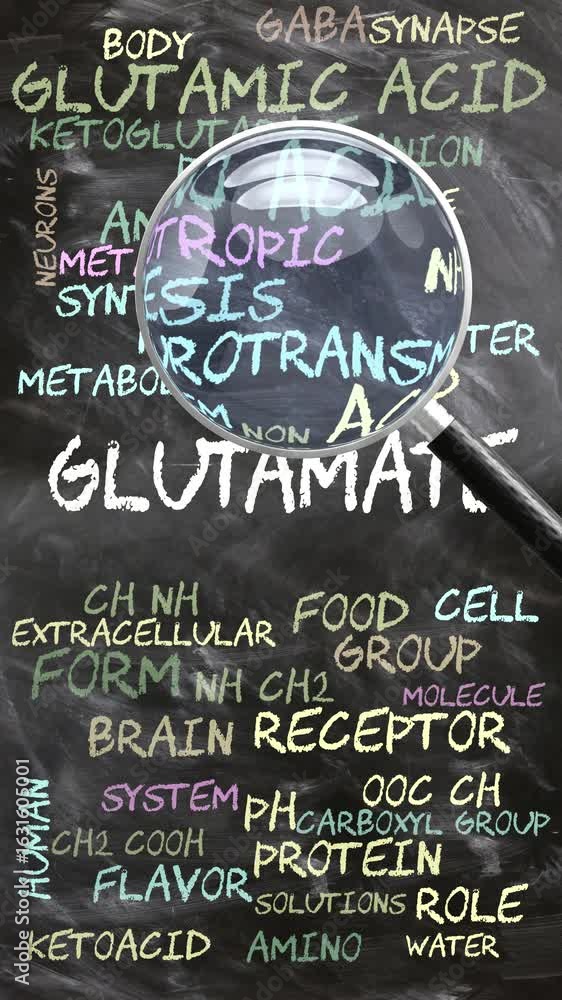 GABA SYNAPSE
BODY
GLUTAMIC ACID
ANION
NEURONS
TROPIC
ESIS
ROTRANSM
NON
GLUTAMATE
CH NH
FOOD CELL
EXTRACELLULAR
GROUP
FORM NH CH2
MOLECULE
BRAIN RECEPTOR
SYSTEM OOC CH
HUMAN
pH CARBOXYL GROUP
CH2 COOH
PROTEIN
FLAVOR
SOLUTIONS ROLE
KETOACID AMINO WATER
Adobe Stock | #1631605001